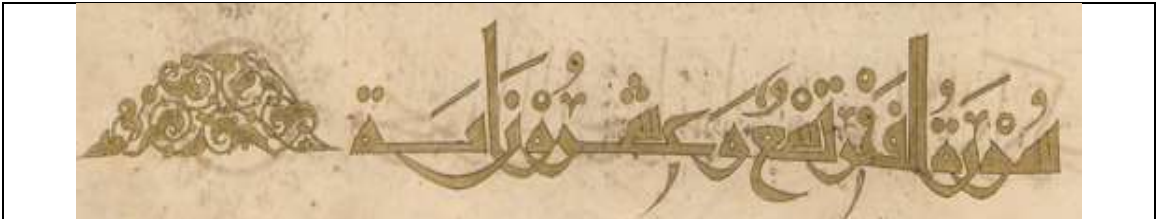 سُوْرَةُ الفَجْرِ تِسْعٌ وَعِشْرُوْنَ اٰيَة